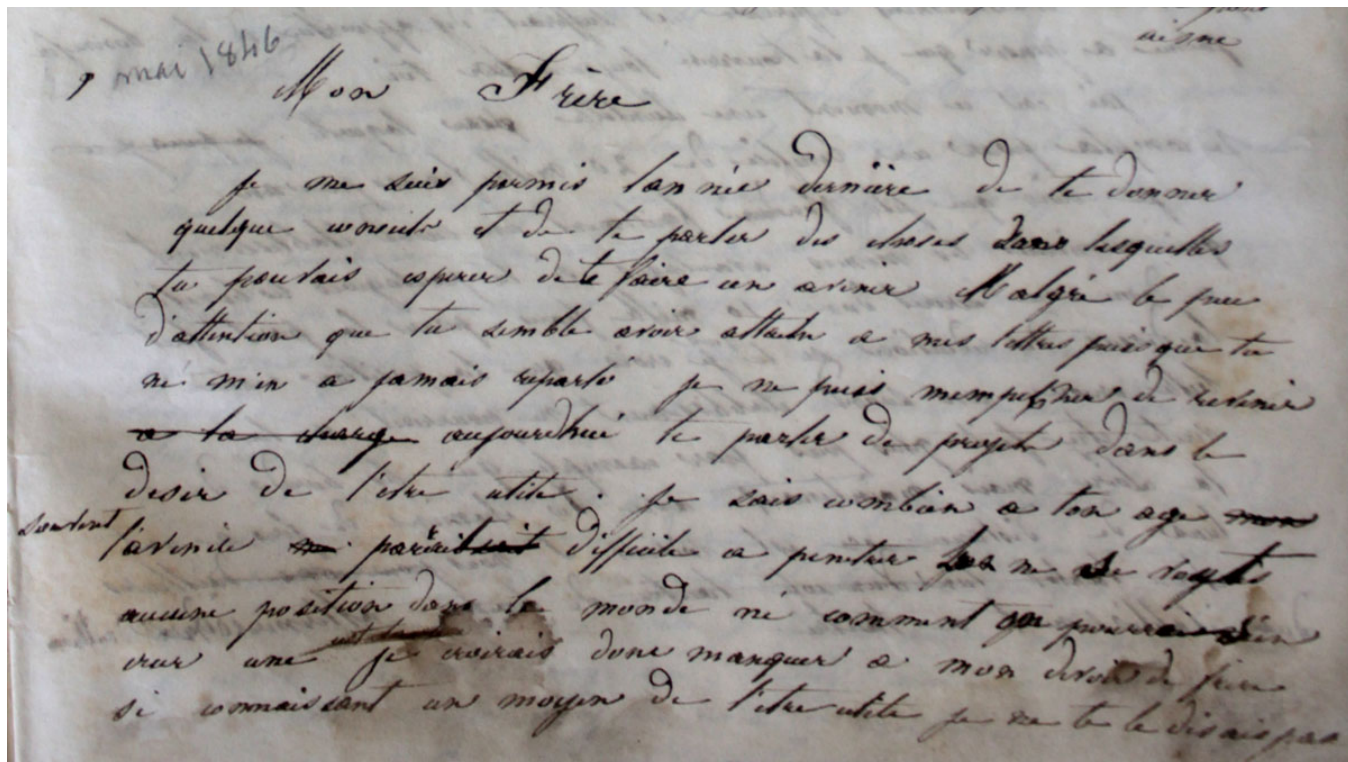 aisne
mai 1846
Mon Frère
je me suis permis lannée dernière de te donner
quelque conseils et de te parler des choses dans lesquelles
tu pouvais esperer de te faire un avenir Malgré le peu
d'attention que tu semble avoir attache a mes lettres puisque tu
ne m'en a jamais reparlé je ne puis mempecher de revenir
a la charge aujourdhui te parler de projets dans le
desir de t'etre utile. je sais combien a ton age mon
souvent
l'avenir parait difficile a penetrer ne se
aucune position dans le monde ni comment pourrai
creer une je croirais donc manquer a mon devoir de frere
si connaissant un moyen de t'etre utile je ne te le disais pas